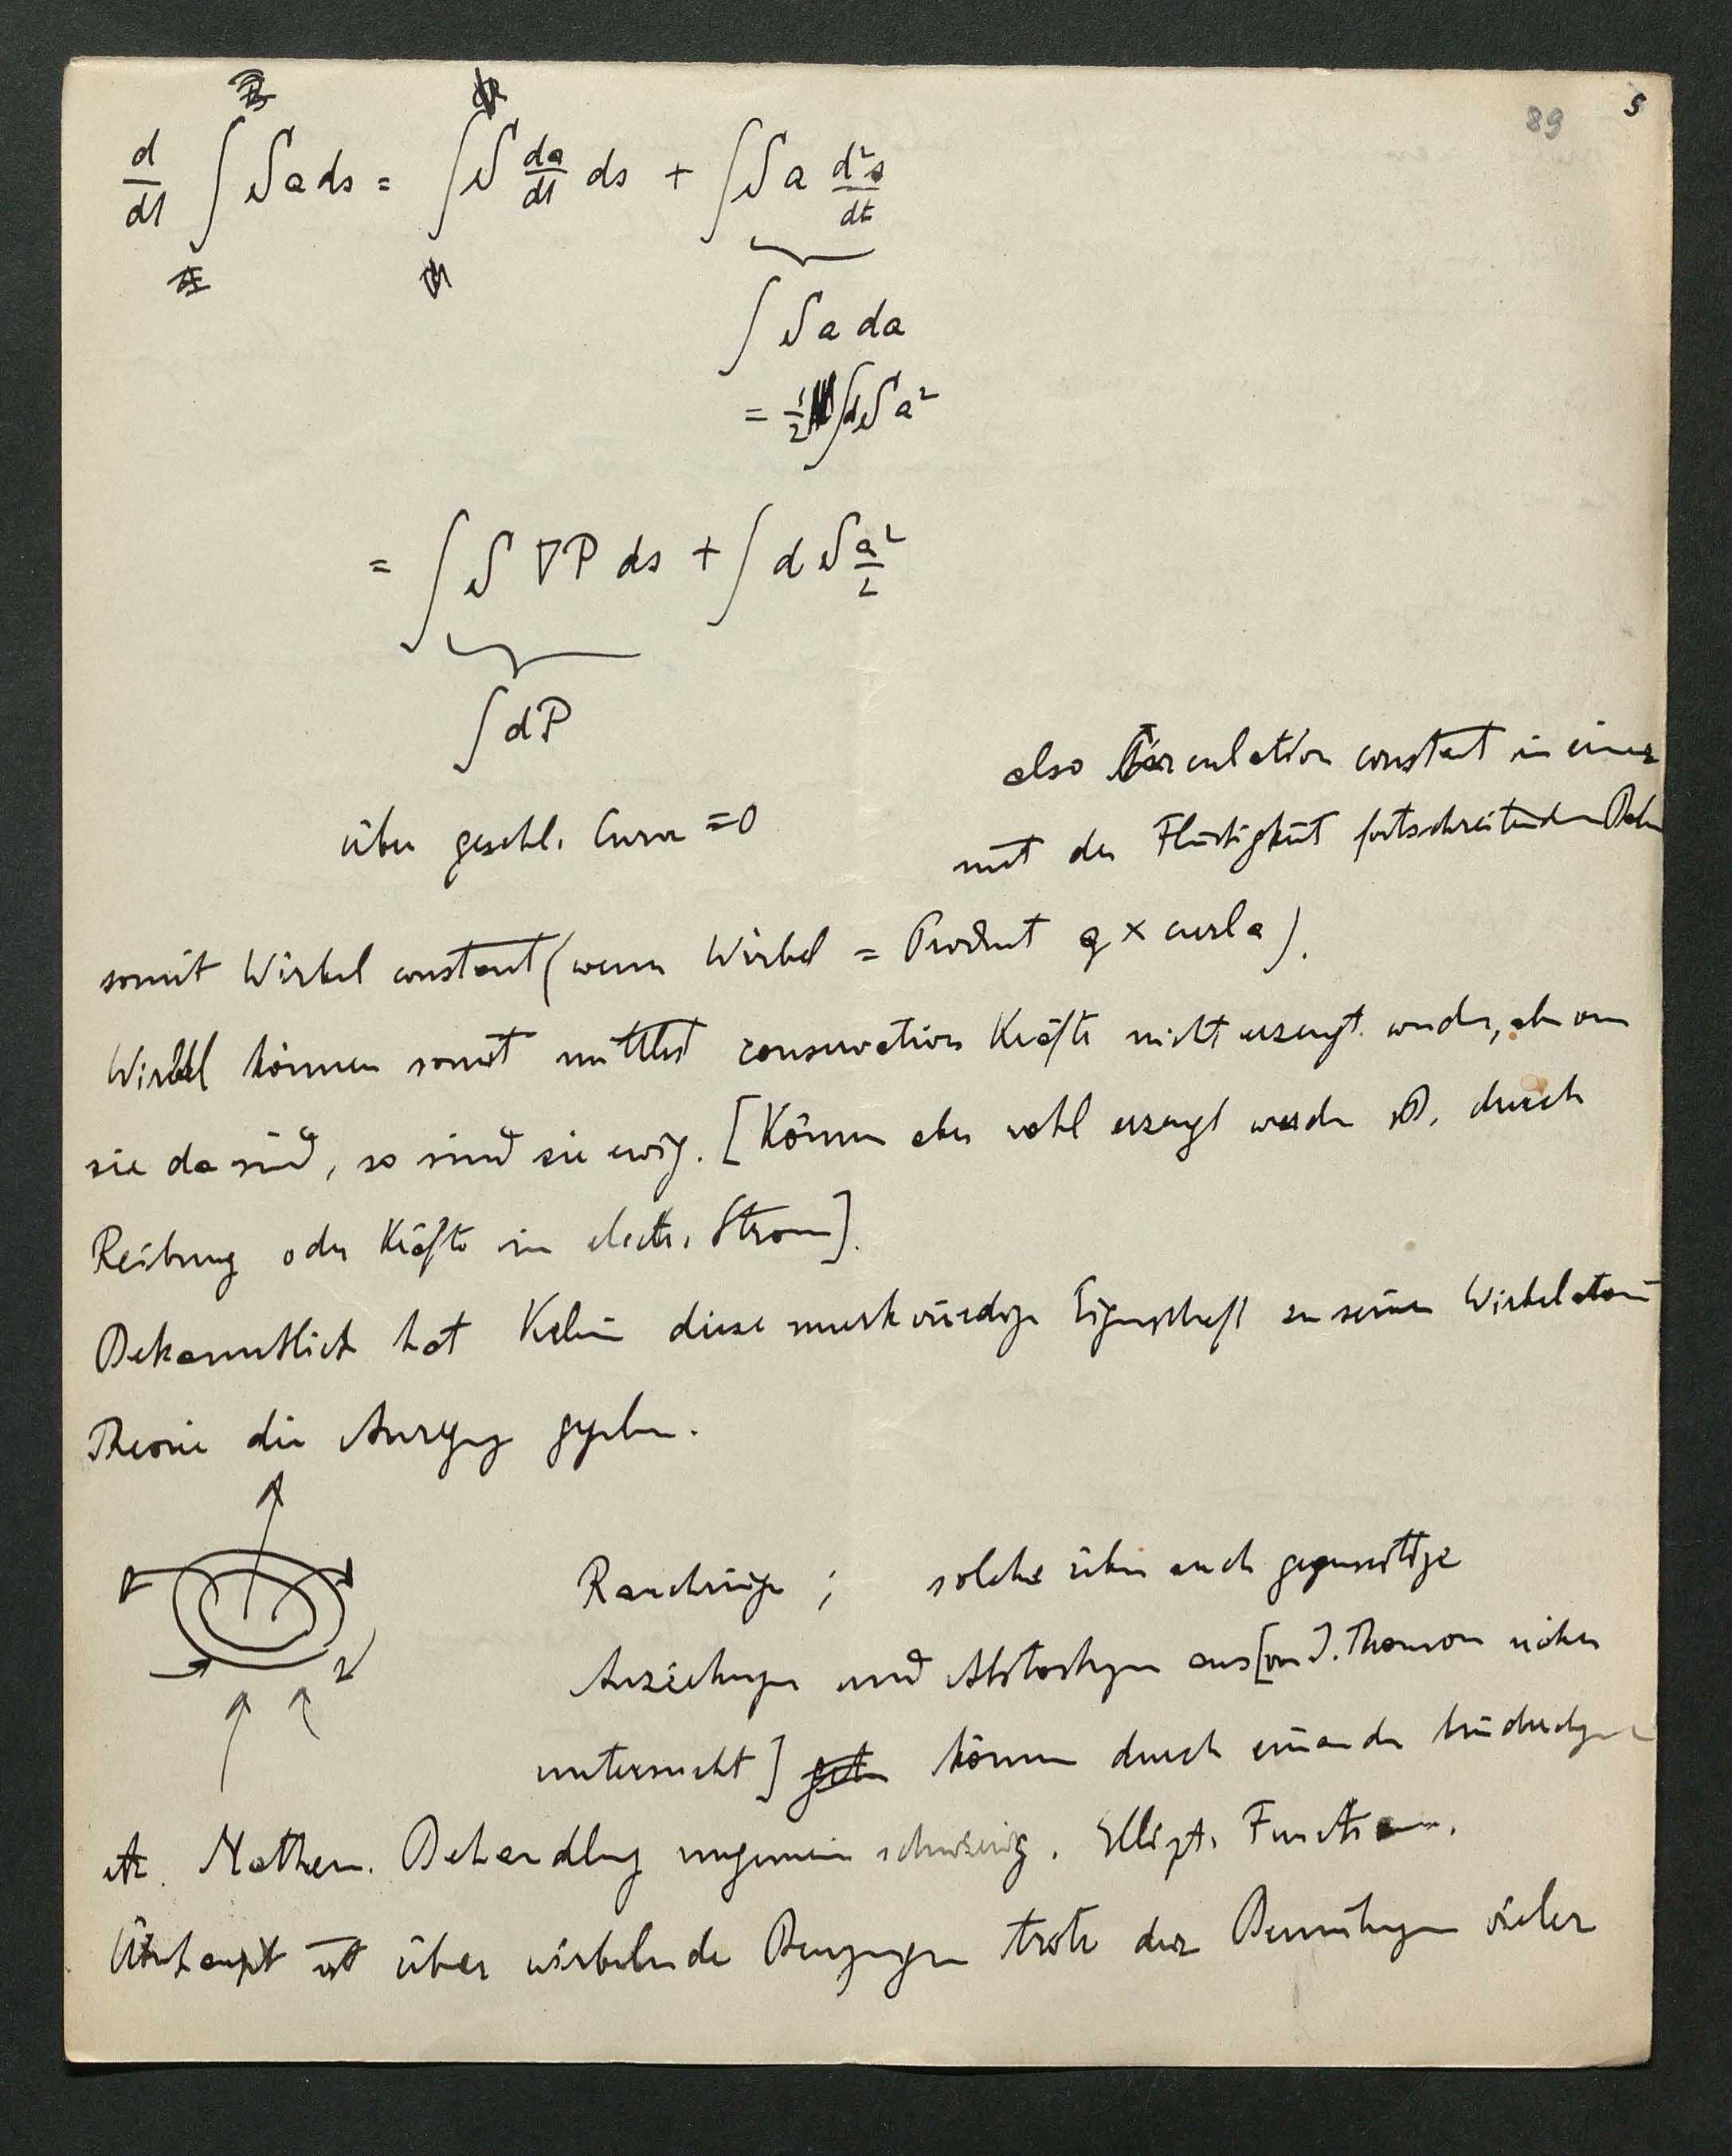 89 5
d/dt ∫ S a ds = ∫ S da/dt ds + ∫ S a d²s/dt
∫ S a da
= 1/2 ∫ d S a²
= ∫ S ∇P ds + ∫ d S a²/2
∫ dP
über geschl. Curve = 0
also Circulation constant in einer
mit der Flüssigkeit fortschreitenden
somit Wirbel constant (wenn Wirbel = Product q × curl a).
Wirbel können somit mittelst conservativer Kräfte nicht erzeugt werden, aber wenn
sie da sind, so sind sie ewig. [Können aber wohl erzeugt werden durch
Reibung oder Kräfte im electr. Strom].
Bekanntlich hat Kelvin diese merkwürdige Eigenschaft zu seiner Wirbelatom
Theorie die Anregung gegeben.
Rauchringe ; solche üben auch gegenseitige
Anziehungen und Abstossungen aus [von J. Thomson näher
untersucht] können durch einander hindurchgehen
etc. Mathem. Behandlung ungemein schwierig. Ellipt. Functionen.
Überhaupt ist über wirbelnde Bewegungen trotz der Bemühungen vieler